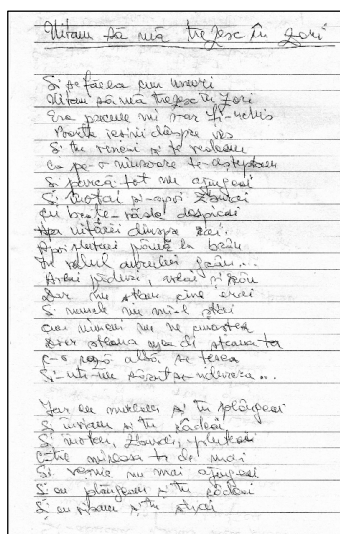 Uitam să mă trezesc în zori
Și se făcea cum uneori
Uitam să mă trezesc în zori
Era parcă mi s-ar fi-nchis
Poarta ieșirii dinspre vis
Și tu veneai și te vedeam
Ca pe-o ninsoare te-așteptam
Și parcă tot nu ajungeai
Și înotai și-apoi zburai
Cu brațe-vâsle despicai
uitării dinspre rai
Apoi până la brâu
În valul aurului grâu...
Aveai păduri, erai și râu
Dar nu știam cine erai
Și numele nu mi-l știai
Căci nimeni nu ne cunoștea
Doar steaua mea și steaua ta
C-o rază albă se țesea
Și într-un sărut se-ndulcea...
Iar eu muream și tu plângeai
Și înviam și tu râdeai
Și înotai, zburai, pluteai
Către mireasa ta de mai
Și vremea nu mai ajungeai
Și eu plângeam și tu râdeai
Și eu știam și tu știai